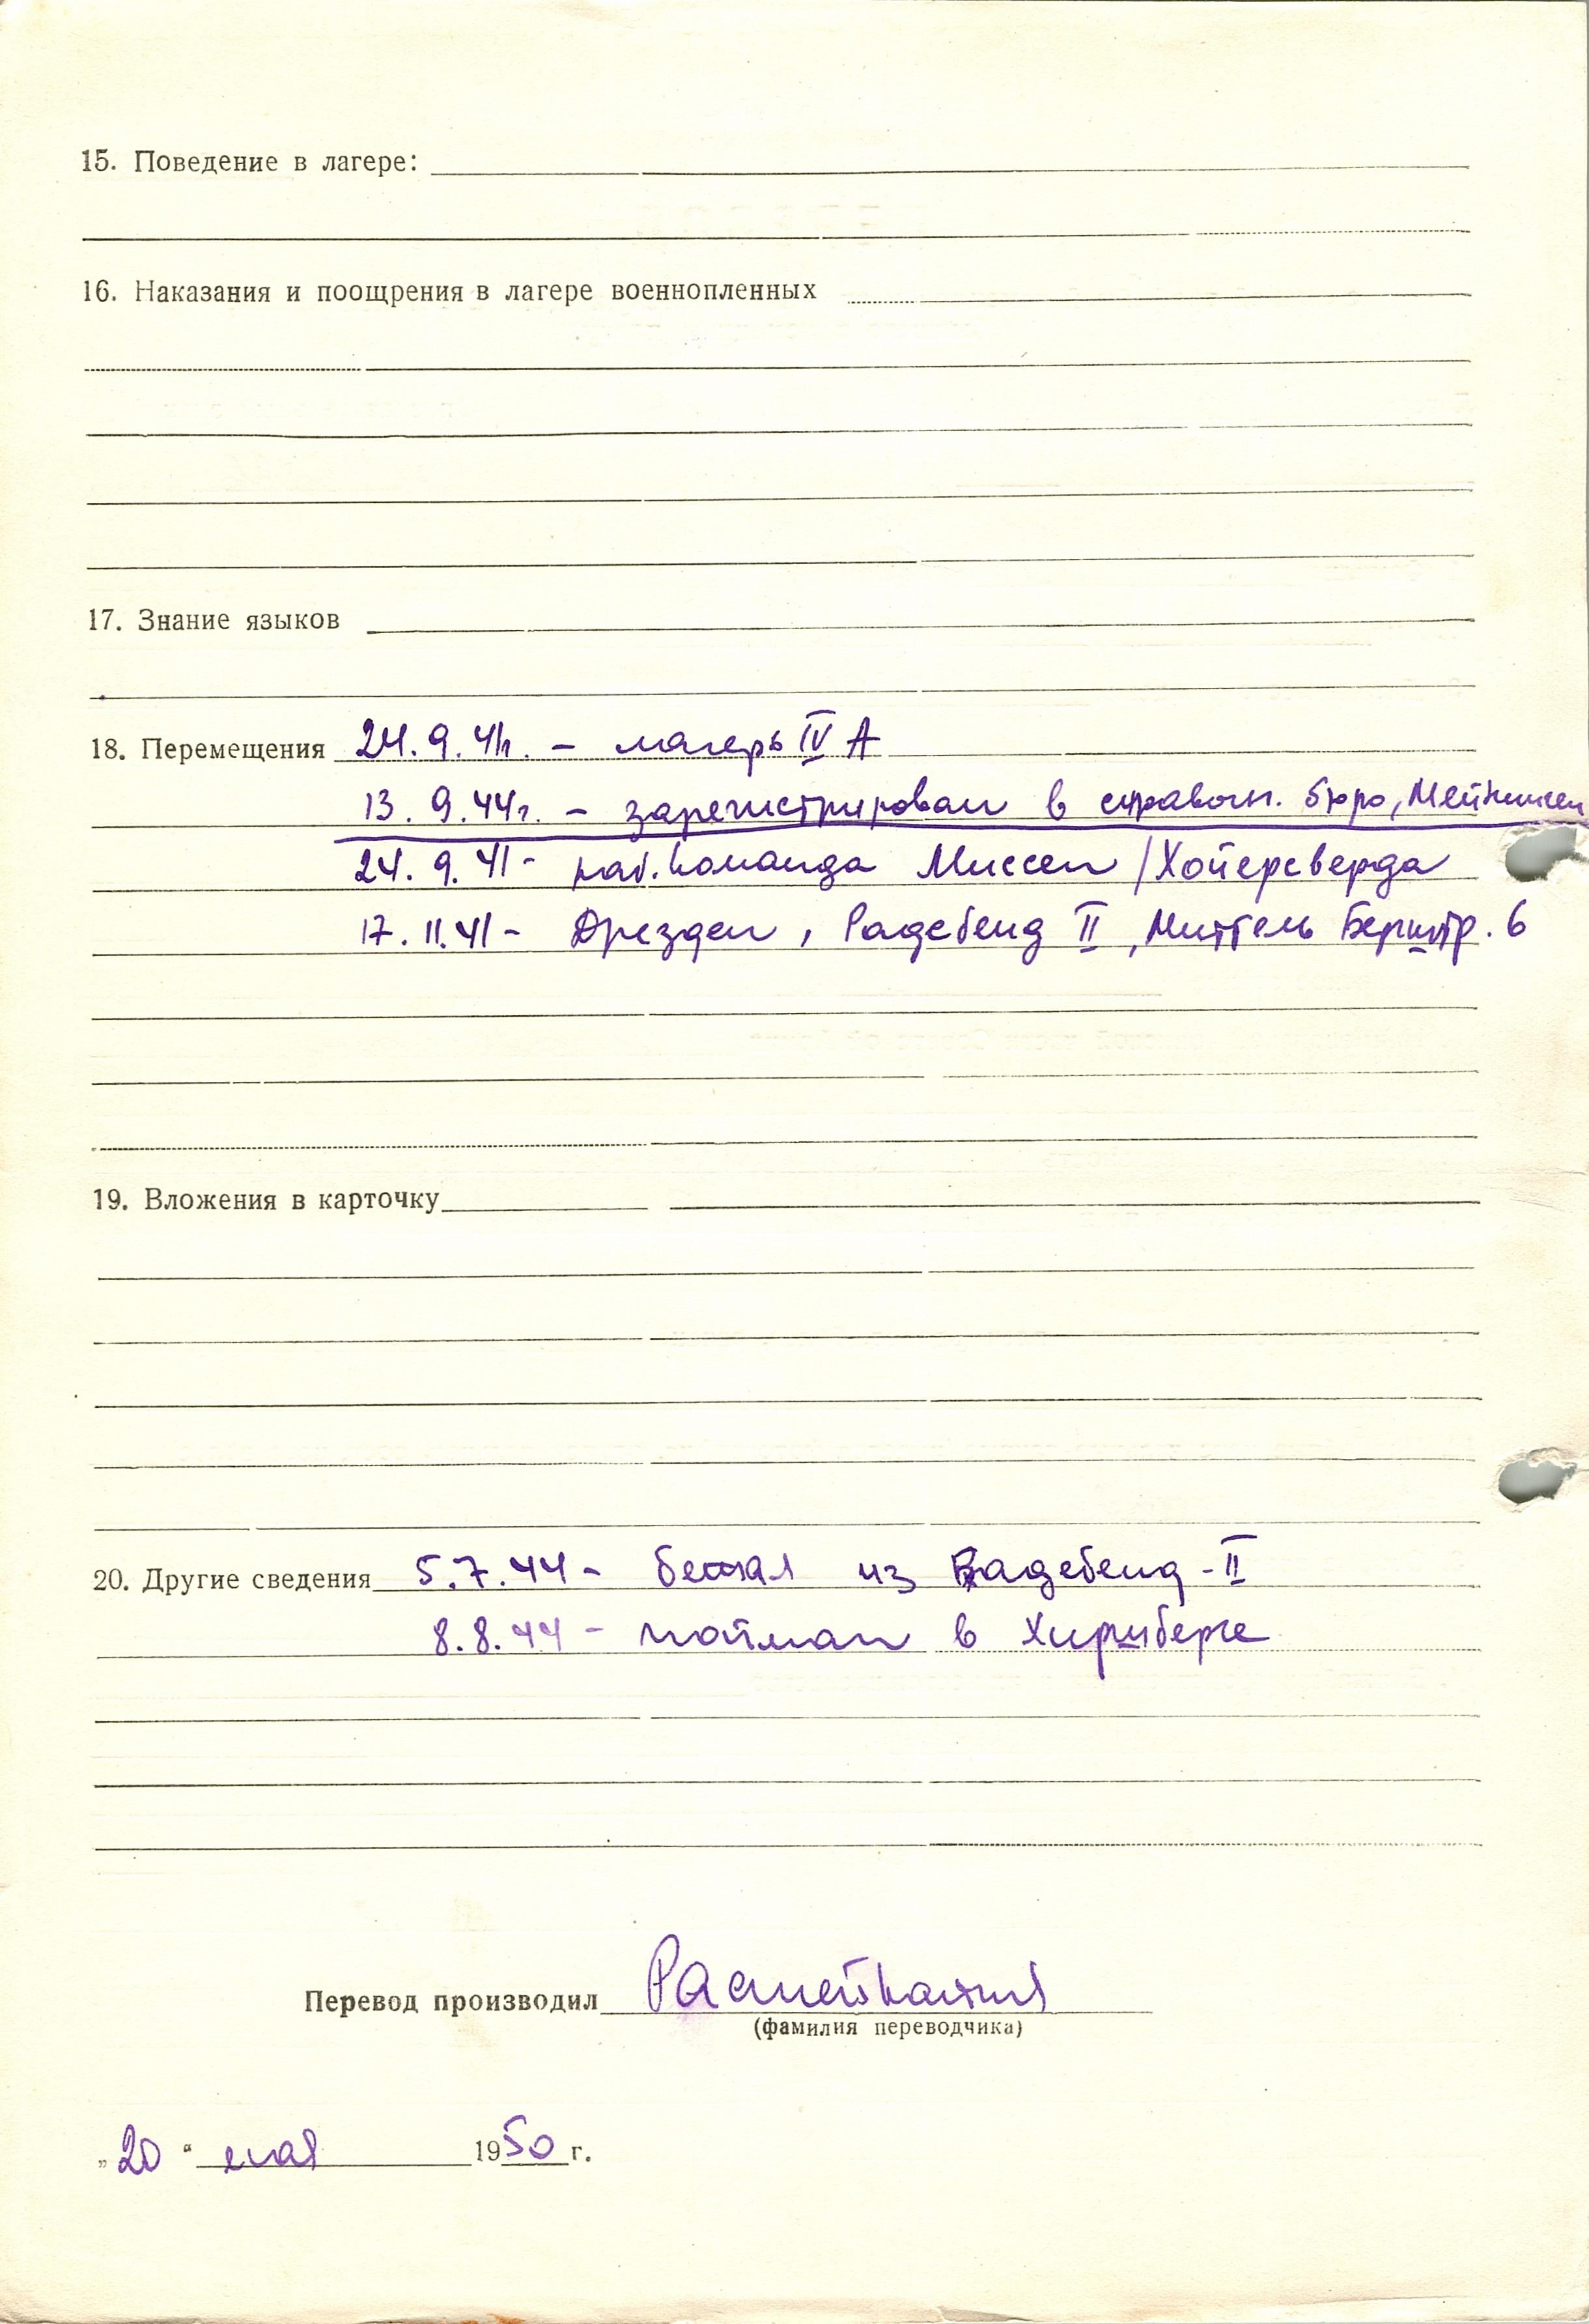 15. Поведение в лагере:
16. Наказания и поощрения в лагере военнопленных
17. Знание языков
18. Перемещения 24.9.41г. – лагерь IV А
13.9.44г. – зарегистрирован в справочн. бюро, Мейнинген
24.9.41 - раб. команда Миссен / Хойерсверда
17.11.41 - Дрезден, Радебейд II, Миттель Бергштр. 6
19. Вложения в карточку
20. Другие сведения 5.7.44 - бежал из Радебейд - II
8.8.44 - пойман в Хиршберге
Перевод производил
(фамилия переводчика)
„20“ мая 1950 г.